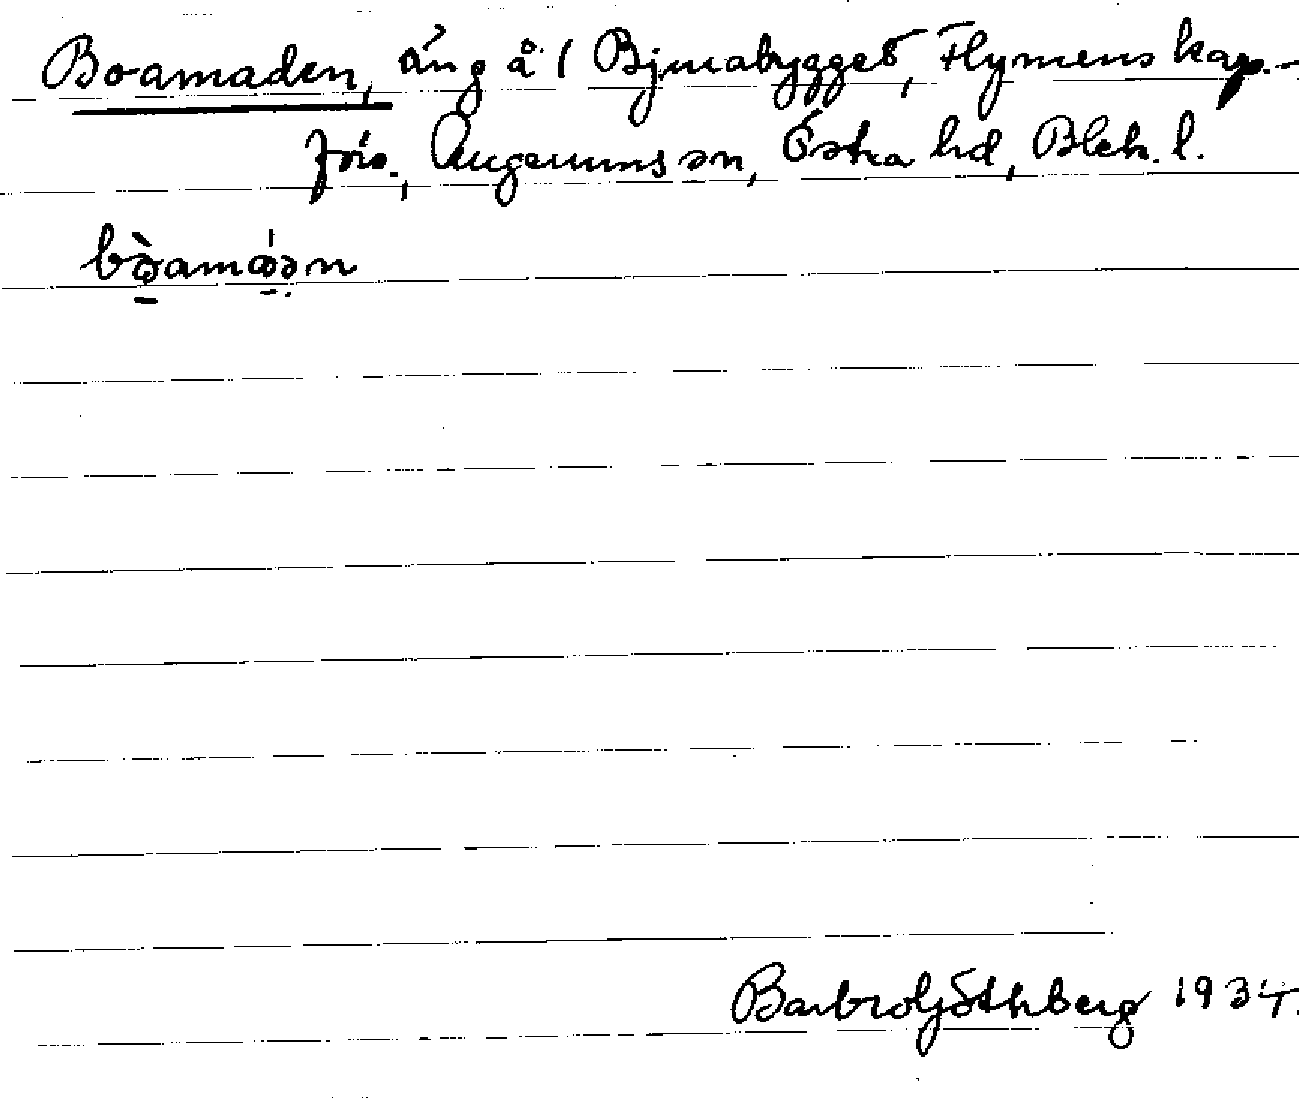 Boamaden, äng å 1 Bjurabygget, Flymens kap.-
förs., Augerums sn, Östra hd, Blek. l.
Barbro Göthberg 1934.